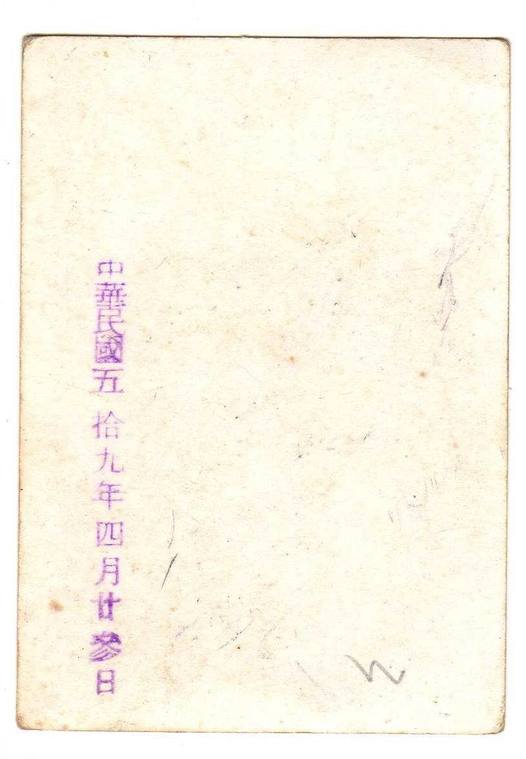 中華民國五拾九年四月廿參日